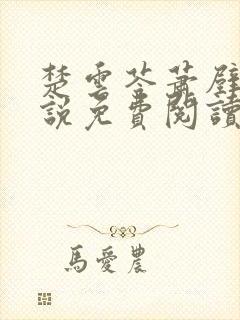 楚雲苓蕭壁
說免費閱讀
馬愛農